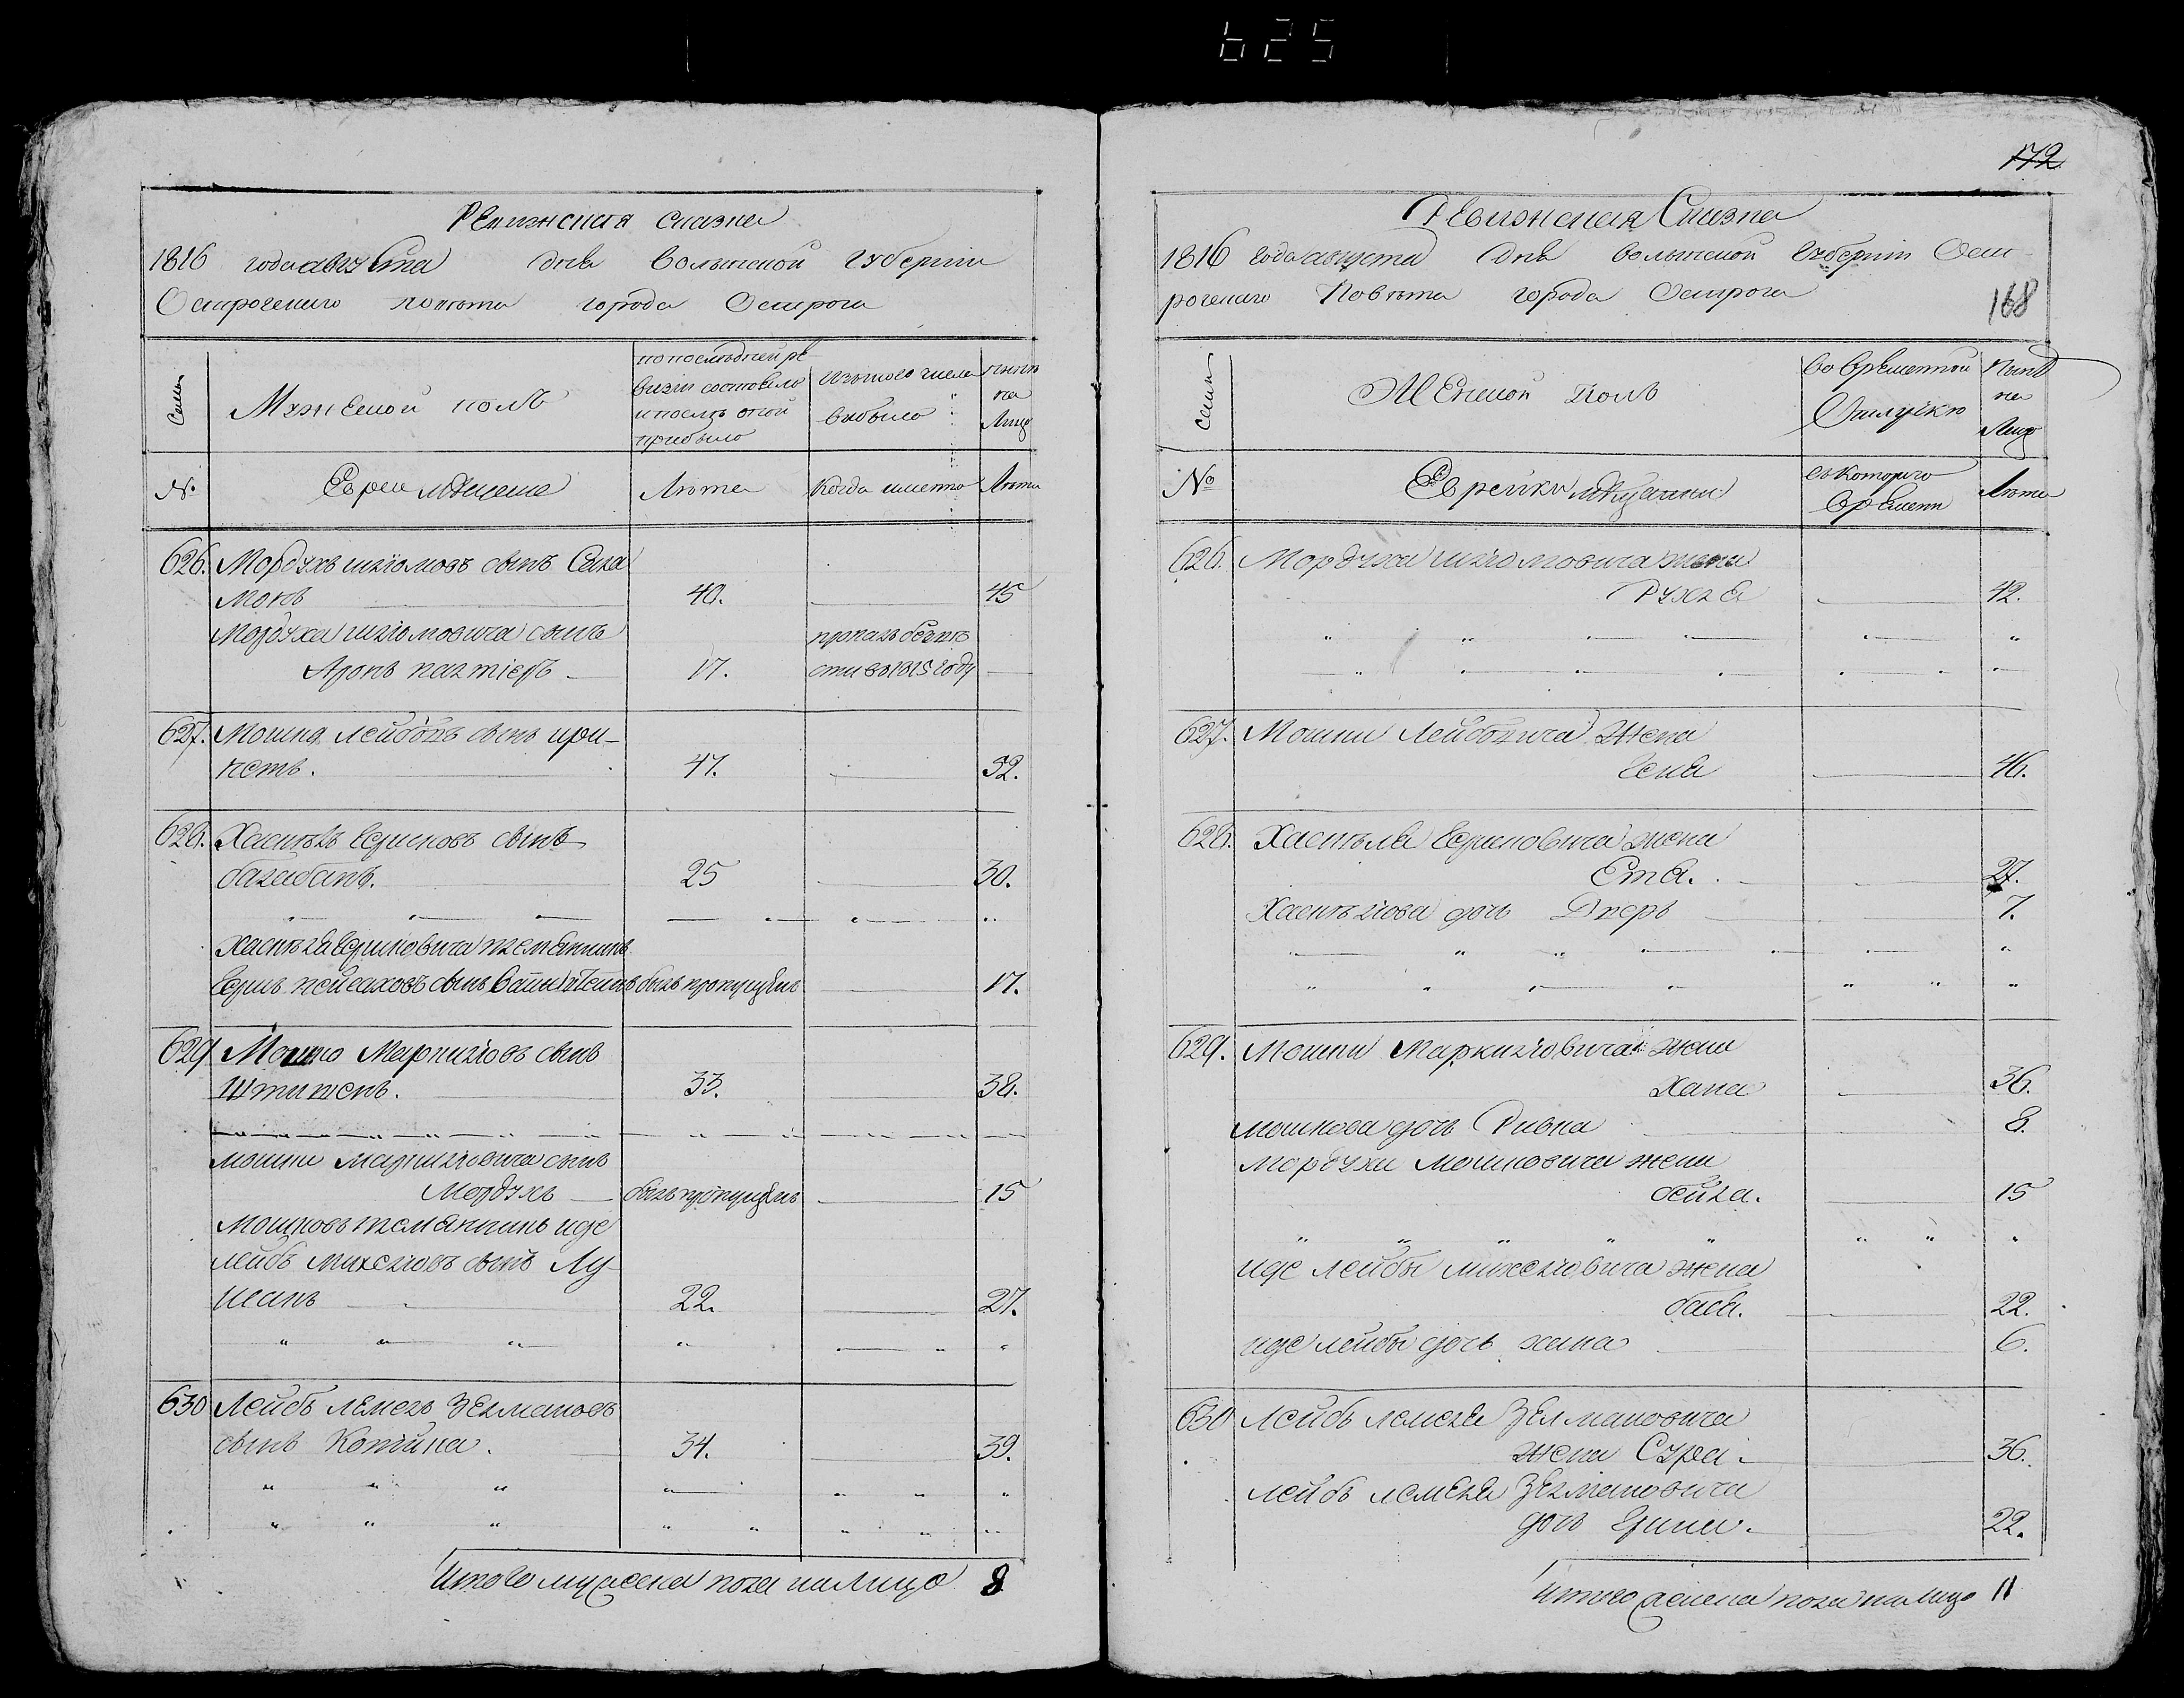 625
Ревижская сказка
1816 года августа дня Волынской губернии
Острогского повѣта города Острога
Семьи
Мужеской полъ
по последней ре
визіи состояло
и после оной
прибыло
Изъ того числа
выбыло
ныне
на
Лицо
№
Евреи мѣщане
Лѣта
Когда именно
Лѣта
626. Мордухъ шлiомовъ сынъ Сала
монъ 40. 45
Мордуха шлiомовича сынъ пропалъ безъвѣ
Аронъ 17. сти въ 1815 году
627. Мошка лейбовъ сынъ
47. 52.
628. Хаскѣль Берковъ сынъ
балабанъ. 25 30.
Хаскѣля племянникъ
сынъ былъ пропущенъ 17.
629 Мошко Маркiловъ сынъ
33. 38.
Мошки Маркiловича сынъ
Мордухъ былъ пропущенъ 15
Мошковъ племянникъ иде
лейбъ Михелiовъ сынъ Лу
22. 27.
630 Лейбъ лемелъ Зельмановъ
сынъ 34. 39.
Итого мужеска пола на лицо 8
172
Ревижская Сказка
1816 года августа дня Волынской губернии Ост
рогского Повѣта города Острога
168
Семьи
Женской полъ
Во временной
Отлучке
Ныне
на
Лицо
№
Еврейки мѣщанки
съ Которого
времени
Лѣта
626. Мордуха шлiомовича жена
Рухля 42.
627. Мошки Лейбовича жена
46.
628. Хаскѣля жена
Етя. 27.
Хаскѣлiова дочь Двера 7.
629. Мошки Маркилiовича жена
Хана 36.
мошкова дочь Ривка 8.
мордухи Мошковича жена
бейла. 15
иде лейбы михелiовича жена
бася. 22.
иде лейбы дочь хана 6.
630 Лейбъ лемеля Зелмановича
жена Сура. 36.
лейбъ лемеля Зелмановича
дочь 22.
Итого женска пола на лицо 11